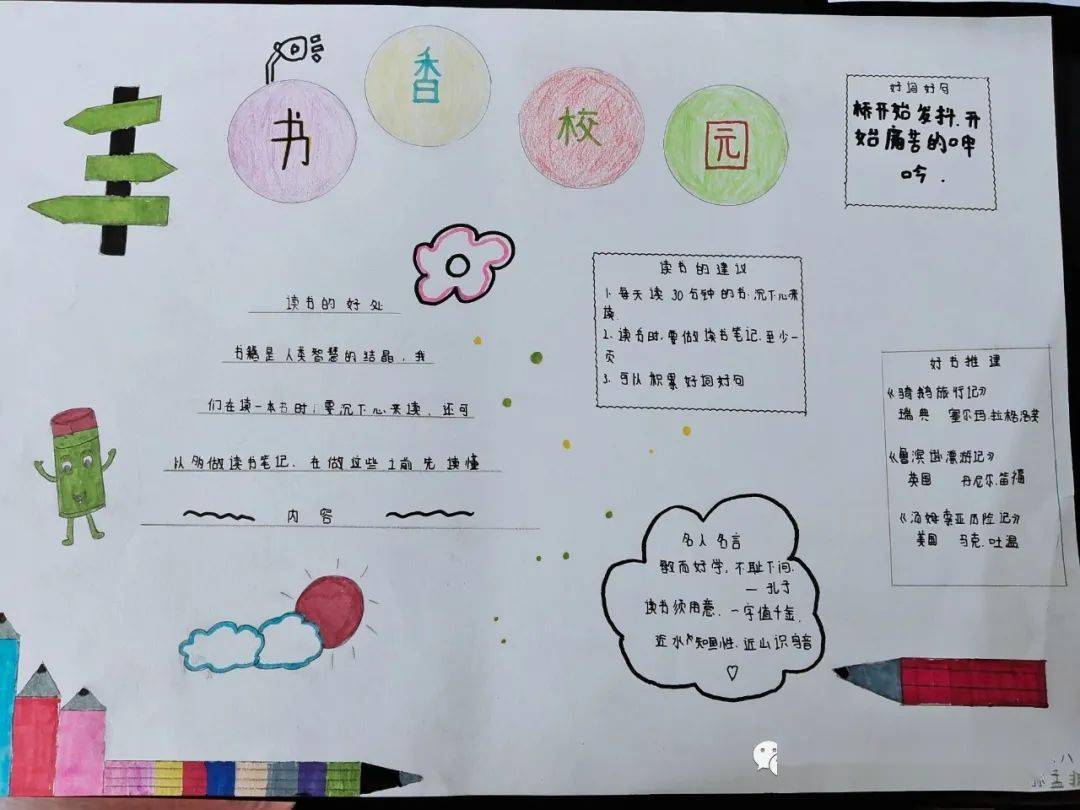 书香校园
好词好句
桥开始发抖.开
始痛苦的呻
吟.
读书的好处
书籍是人类智慧的结晶，我
们在读一本书时；要沉下心来读，还可
以多做读书笔记.在做这些土前先读懂
内容
读书的建议
1.每天读30分钟的书.沉下心来
读.
2.读书时,要做读书笔记.至少一
页
3.可以积累好词好句
好书推建
《骑鹅旅行记》
瑞典 塞尔玛.拉格洛芙
《鲁滨逊漂游记》
英国 丹尼尔.笛福
《汤姆索亚历险记》
美国 马克.吐温
名人名言
敏而好学,不耻下问.
— 孔子
读书须用意.一字值千金,
近水知鱼性.近山识鸟音